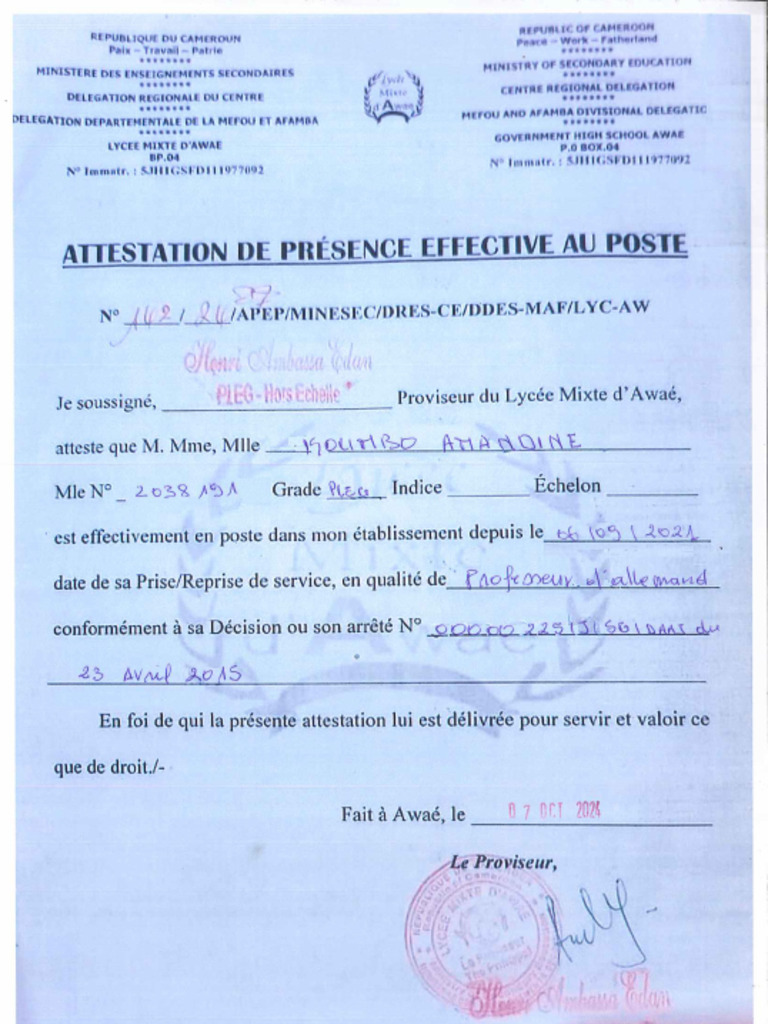 REPUBLIQUE DU CAMEROUN
Paix – Travail – Patrie
********
MINISTERE DES ENSEIGNEMENTS SECONDAIRES
********
DELEGATION REGIONALE DU CENTRE
********
DELEGATION DEPARTEMENTALE DE LA MEFOU ET AFAMBA
********
LYCEE MIXTE D'AWAE
BP.04
N° Immatr. : 5JH1GSFD111977092
Lycée
Mixte
d'Awaé
REPUBLIC OF CAMEROON
Peace – Work – Fatherland
********
MINISTRY OF SECONDARY EDUCATION
********
CENTRE REGIONAL DELEGATION
********
MEFOU AND AFAMBA DIVISIONAL DELEGATIO
********
GOVERNMENT HIGH SCHOOL AWAE
P.O BOX.04
N° Immatr. : 5JH1GSFD111977092
ATTESTATION DE PRÉSENCE EFFECTIVE AU POSTE
N° 142/24/APEP/MINESEC/DRES-CE/DDES-MAF/LYC-AW
Henri Ambassa Edan
PLEG - Hors Echelle
Je soussigné, Proviseur du Lycée Mixte d'Awaé,
atteste que M. Mme, Mlle KOUMBO AMANDINE
Mle N° 2038191 Grade PLEG Indice Échelon
est effectivement en poste dans mon établissement depuis le 06/09/2021
date de sa Prise/Reprise de service, en qualité de Professeur d'allemand
conformément à sa Décision ou son arrêté N° du
23 Avril 2015
En foi de qui la présente attestation lui est délivrée pour servir et valoir ce
que de droit./-
Fait à Awaé, le 07 OCT 2024
Le Proviseur,
REPUBLIQUE DU CAMEROUN
Republic of Cameroon
LYCEE MIXTE D'AWAE
Le Proviseur
The Principal
Henri Ambassa Edan